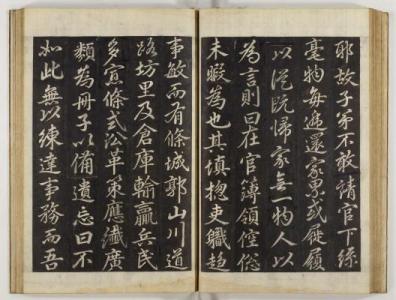 耶故子弟不敢請官下絲
毫物每遞還家累或屣履
以從既歸家無一物人以
為言則曰在官簿領倥傯
未暇為也其填揔吏職趍
事敏而有條城郭山川道
路坊里及倉庫輸贏兵民
多寡條式訟單策應纖廣
類為冊子以備遺忘曰不
如此無以練達事務而吾